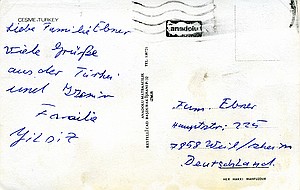 ÇEŞME-TURKEY
Liebe Familie Ebner
Viele Grüße
aus der Türkei
und Izmir
Familie
YILDIZ
anadolu
Fam. Ebner
Hauptstr. 225
7858 Weil/Rhein
Deutschland
HER HAKKI MAHFUZDUR